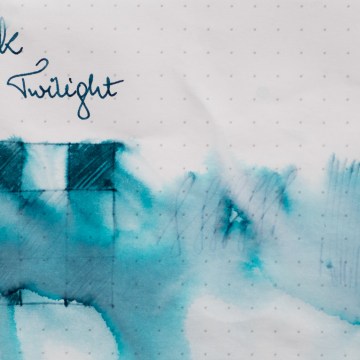 k
Twilight